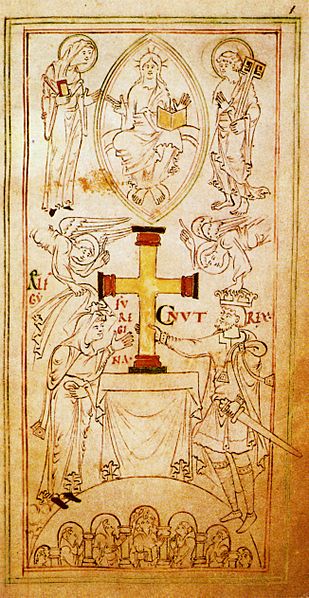 1
ÆLF
GY
FV
RE
GI
NA
CNVT REX